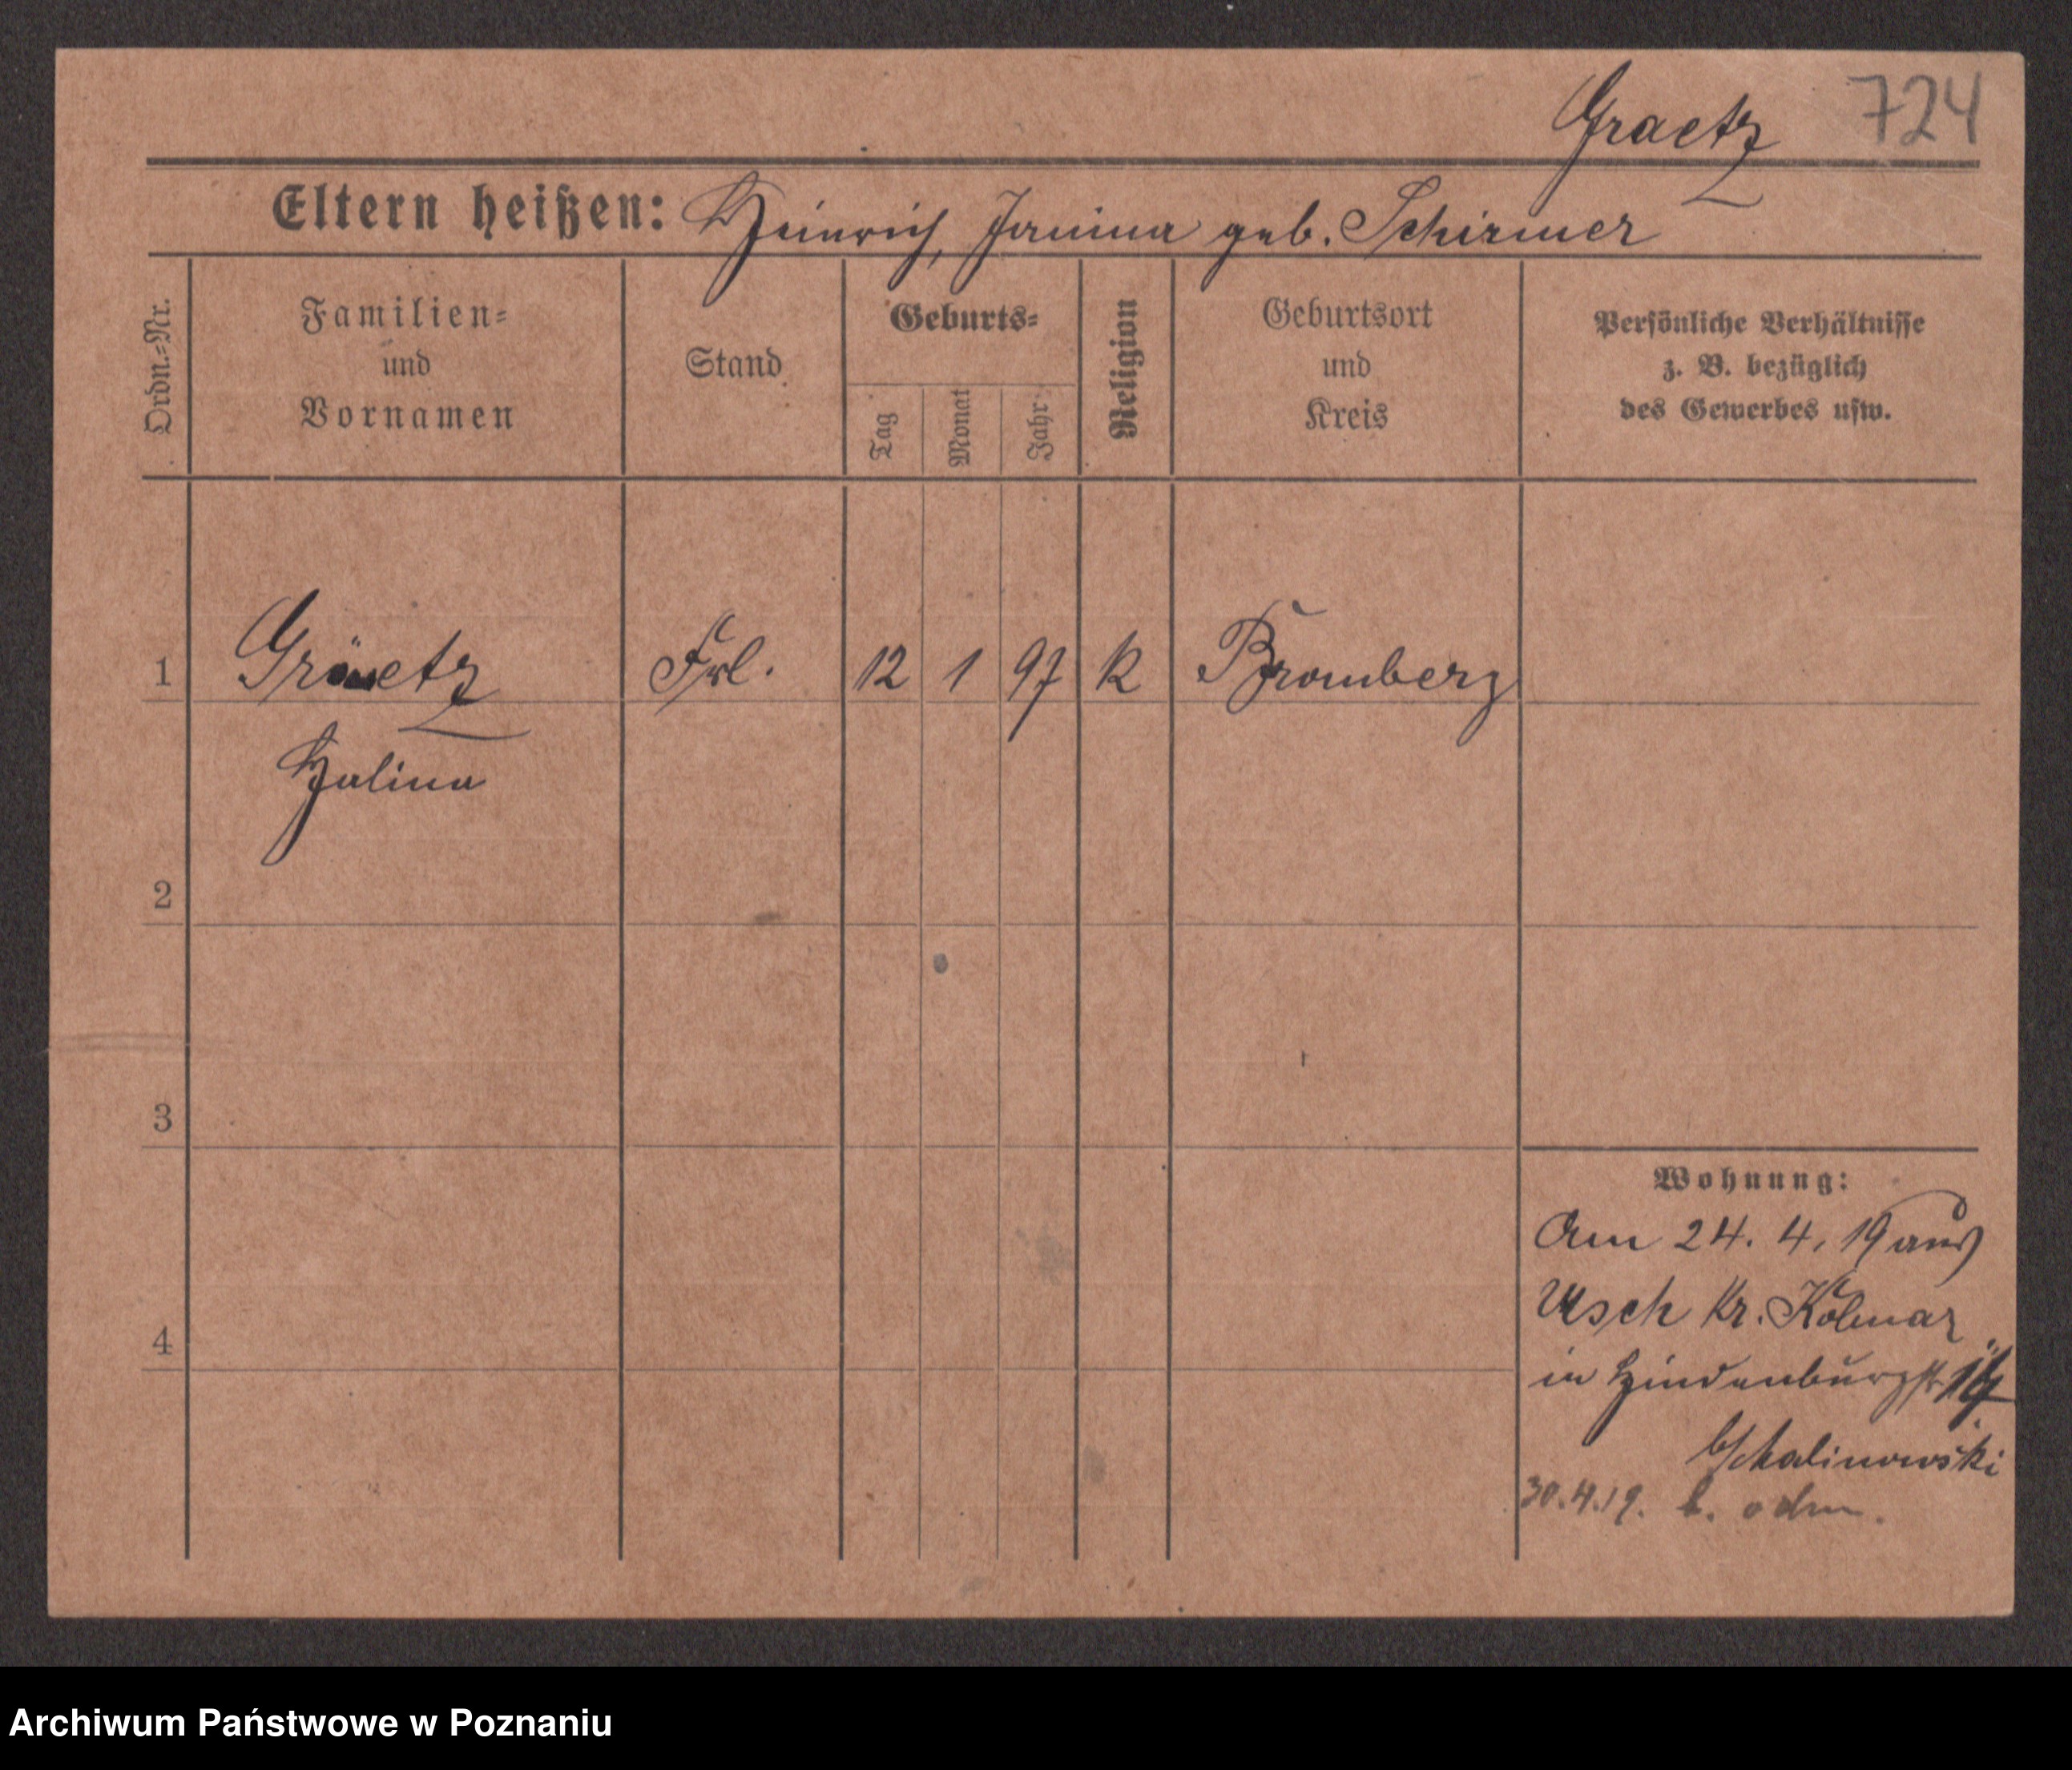 Graetz 724
Eltern heißen: Heinrich, Janina geb. Schirmer
Ordn.-Nr.
Familien-
und
Vornamen
Stand
Geburts-
Tag
Monat
Jahr
Religion
Geburtsort
und
Kreis
Persönliche Verhältnisse
z. B. bezüglich
des Gewerbes usw.
1 Graetz Frl. 12 1 97 k Bromberg
Halina
2
3
4
Wohnung:
Am 24. 4. 19 aus
Usch Kr. Kolmar
in Hindenburgstr
b/Kalinowski
30.4.19.
Archiwum Państwowe w Poznaniu